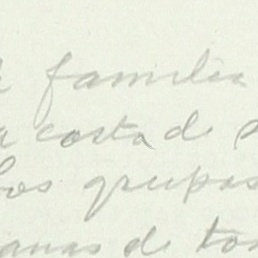 familia
costa de
los grupos
anas de